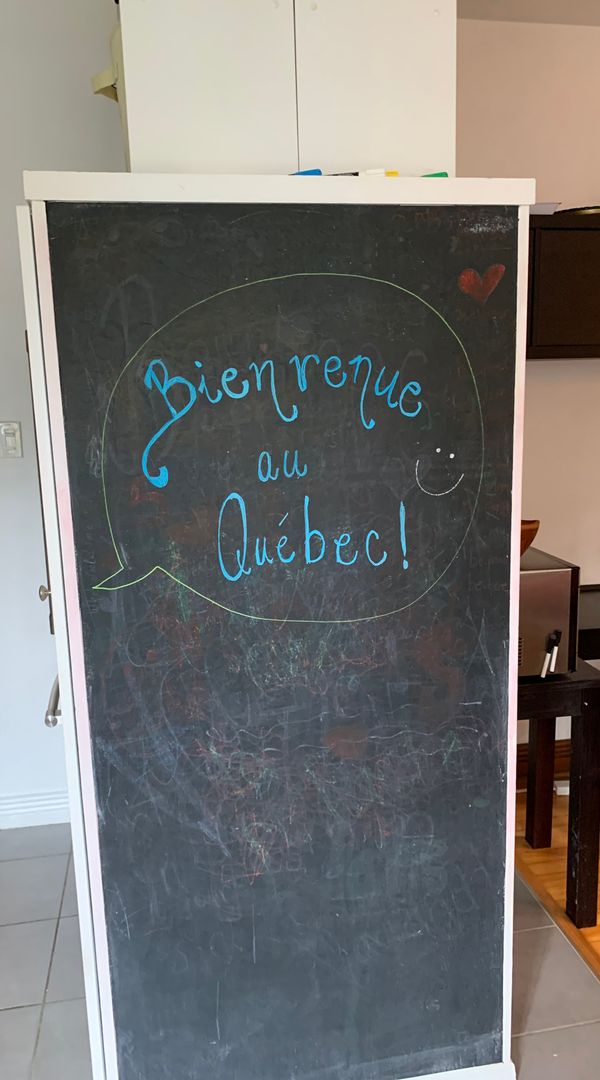 Bienvenue
au
Québec!